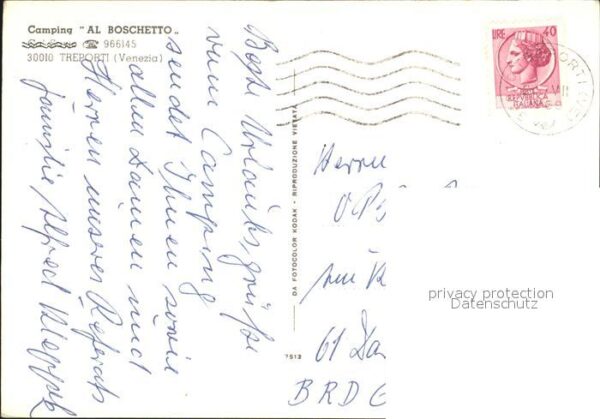 Camping "AL BOSCHETTO"
☎ 966145
30010 TREPORTI (Venezia)
Beste Urlaubsgrüße
vom Camping
sendet Ihnen sowie
allen Damen und
Herren unseres Referats
Familie Alfred
DA FOTOCOLOR KODAK - RIPRODUZIONE VIETATA
7513
LIRE 40
ITALIANA
Herrn
61 Da
BRD
privacy protection
Datenschutz